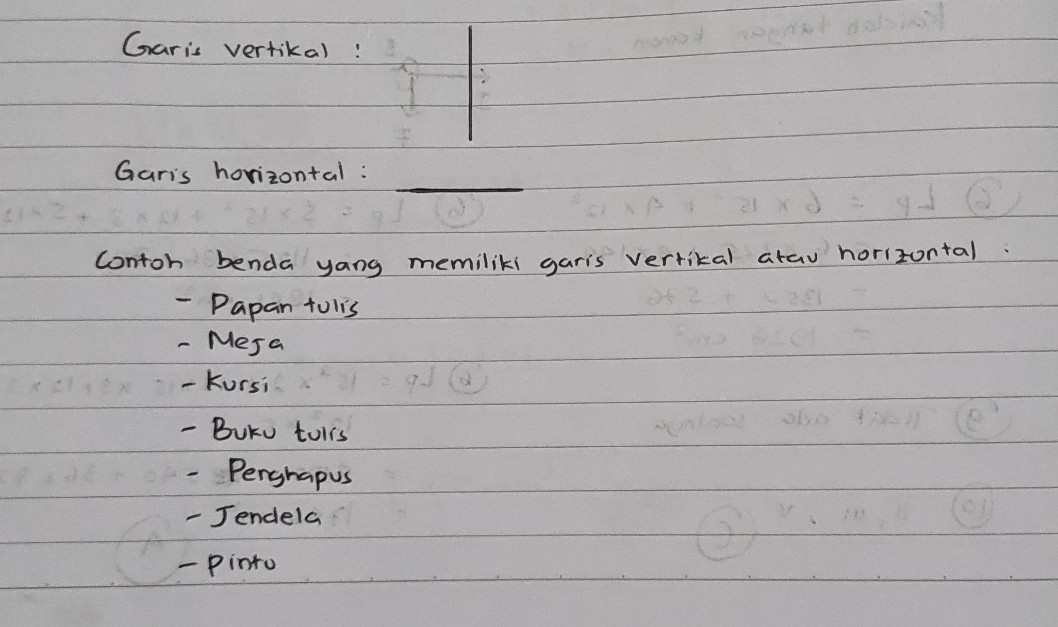 Garis vertikal :
Garis horizontal :
Contoh benda yang memiliki garis vertikal atau horizontal :
- Papan tulis
- Meja
- Kursi
- Buku tulis
- Penghapus
- Jendela
- Pintu